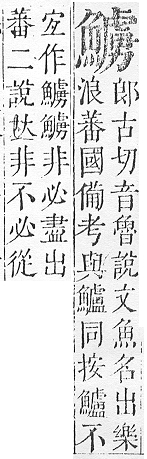 䲐
郎古切音魯說文魚名出樂
浪蕃國備考與鱸同按鱸不
宐作䲐䲐非必盡出
蕃二說𠀤非不必從